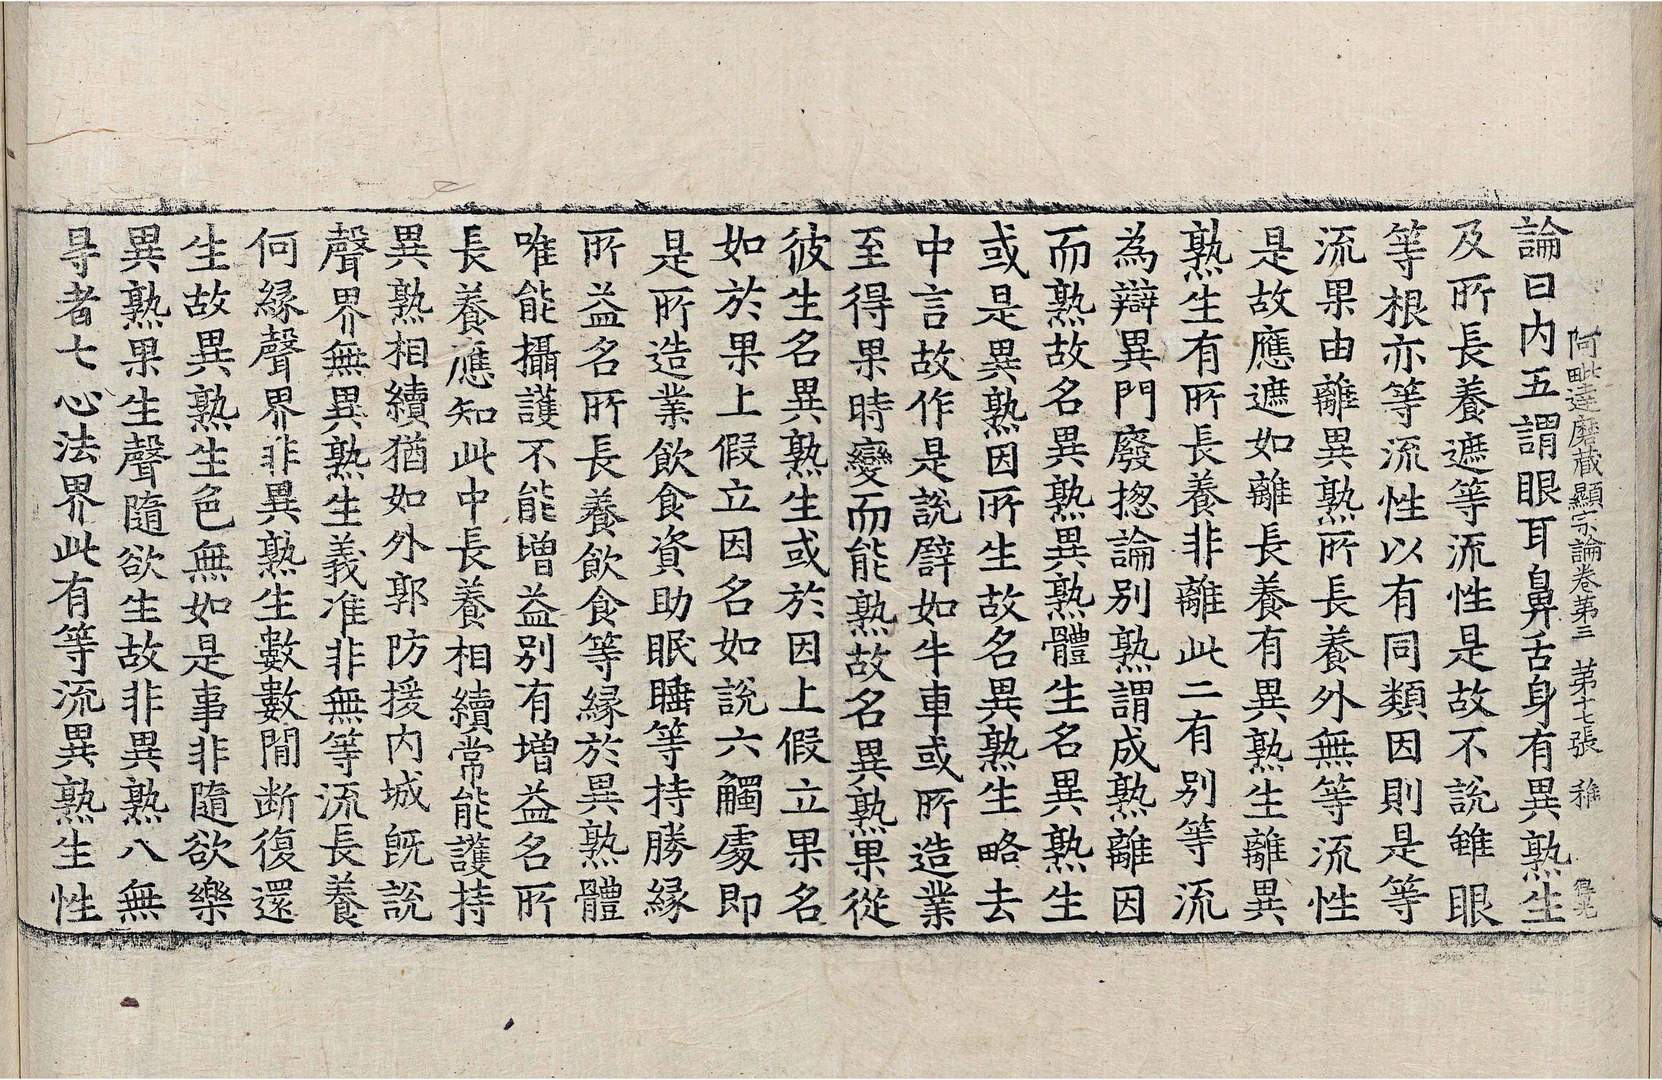 阿毗達磨藏顯宗論卷第三 第十七張 稚
論曰內五謂眼耳鼻舌身有異熟生
及所長養遮等流性是故不說雖眼
等根亦等流性以有同類因則是等
流果由離異熟所長養外無等流性
是故應遮如離長養有異熟生離異
熟生有所長養非離此二有別等流
為辯異門廢揔論別熟謂成熟離因
而熟故名異熟異熟體生名異熟生
或是異熟因所生故名異熟生略去
中言故作是說譬如牛車或所造業
至得果時變而能熟故名異熟果從
彼生名異熟生或於因上假立果名
如於果上假立因名如說六觸處即
是所造業飲食資助眠睡等持勝緣
所益名所長養飲食等緣於異熟體
唯能攝護不能增益別有增益名所
長養應知此中長養相續常能護持
異熟相續猶如外郭防援內城旣說
聲界無異熟生義准非無等流長養
何緣聲界非異熟生數數閒断復還
生故異熟生色無如是事非隨欲樂
異熟果生聲隨欲生故非異熟八無
㝵者七心法界此有等流異熟生性